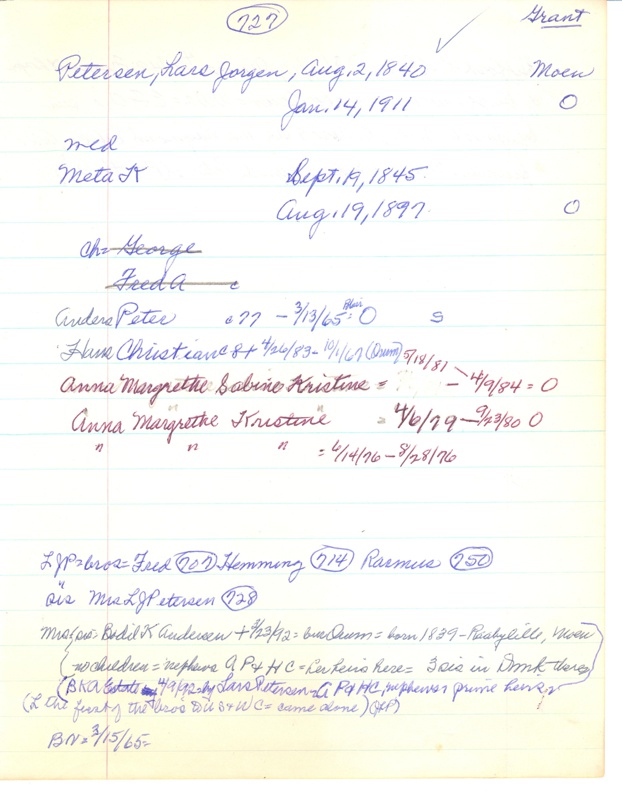 727
Grant
Petersen, Lars Jorgen, Aug. 2, 1840 Moen
Jan. 14, 1911 O
med
Meta K Sept. 19, 1845
Aug. 19, 1897 O
ch= George
Fred A c
Anders Peter c77 - 3/13/65 = O S
Blair
Hans Christian c8+ 4/26/83 - 10/1/67 (Orum) 5/18/81
Anna Margrethe Sabine Kristine = - 4/9/84 = O
Anna Margrethe Kristine = 4/6/79 - 9/23/80 O
" " " = 6/14/76 - 8/28/76
LJP = bros = Fred 707 Hemming 714 Rasmus 750
sis Mrs LJ Petersen 728
Bodil K Andersen + 3/23/92 = bur Orum = born 1839 - Moen
no children = nephews AP + HC = heirs here = 3 sis in Dmk
(BKA Estate 4/9/92 by Lars Petersen - AP + HC, nephews
(L the first of the bros to = came alone)
BN = 3/15/65 =